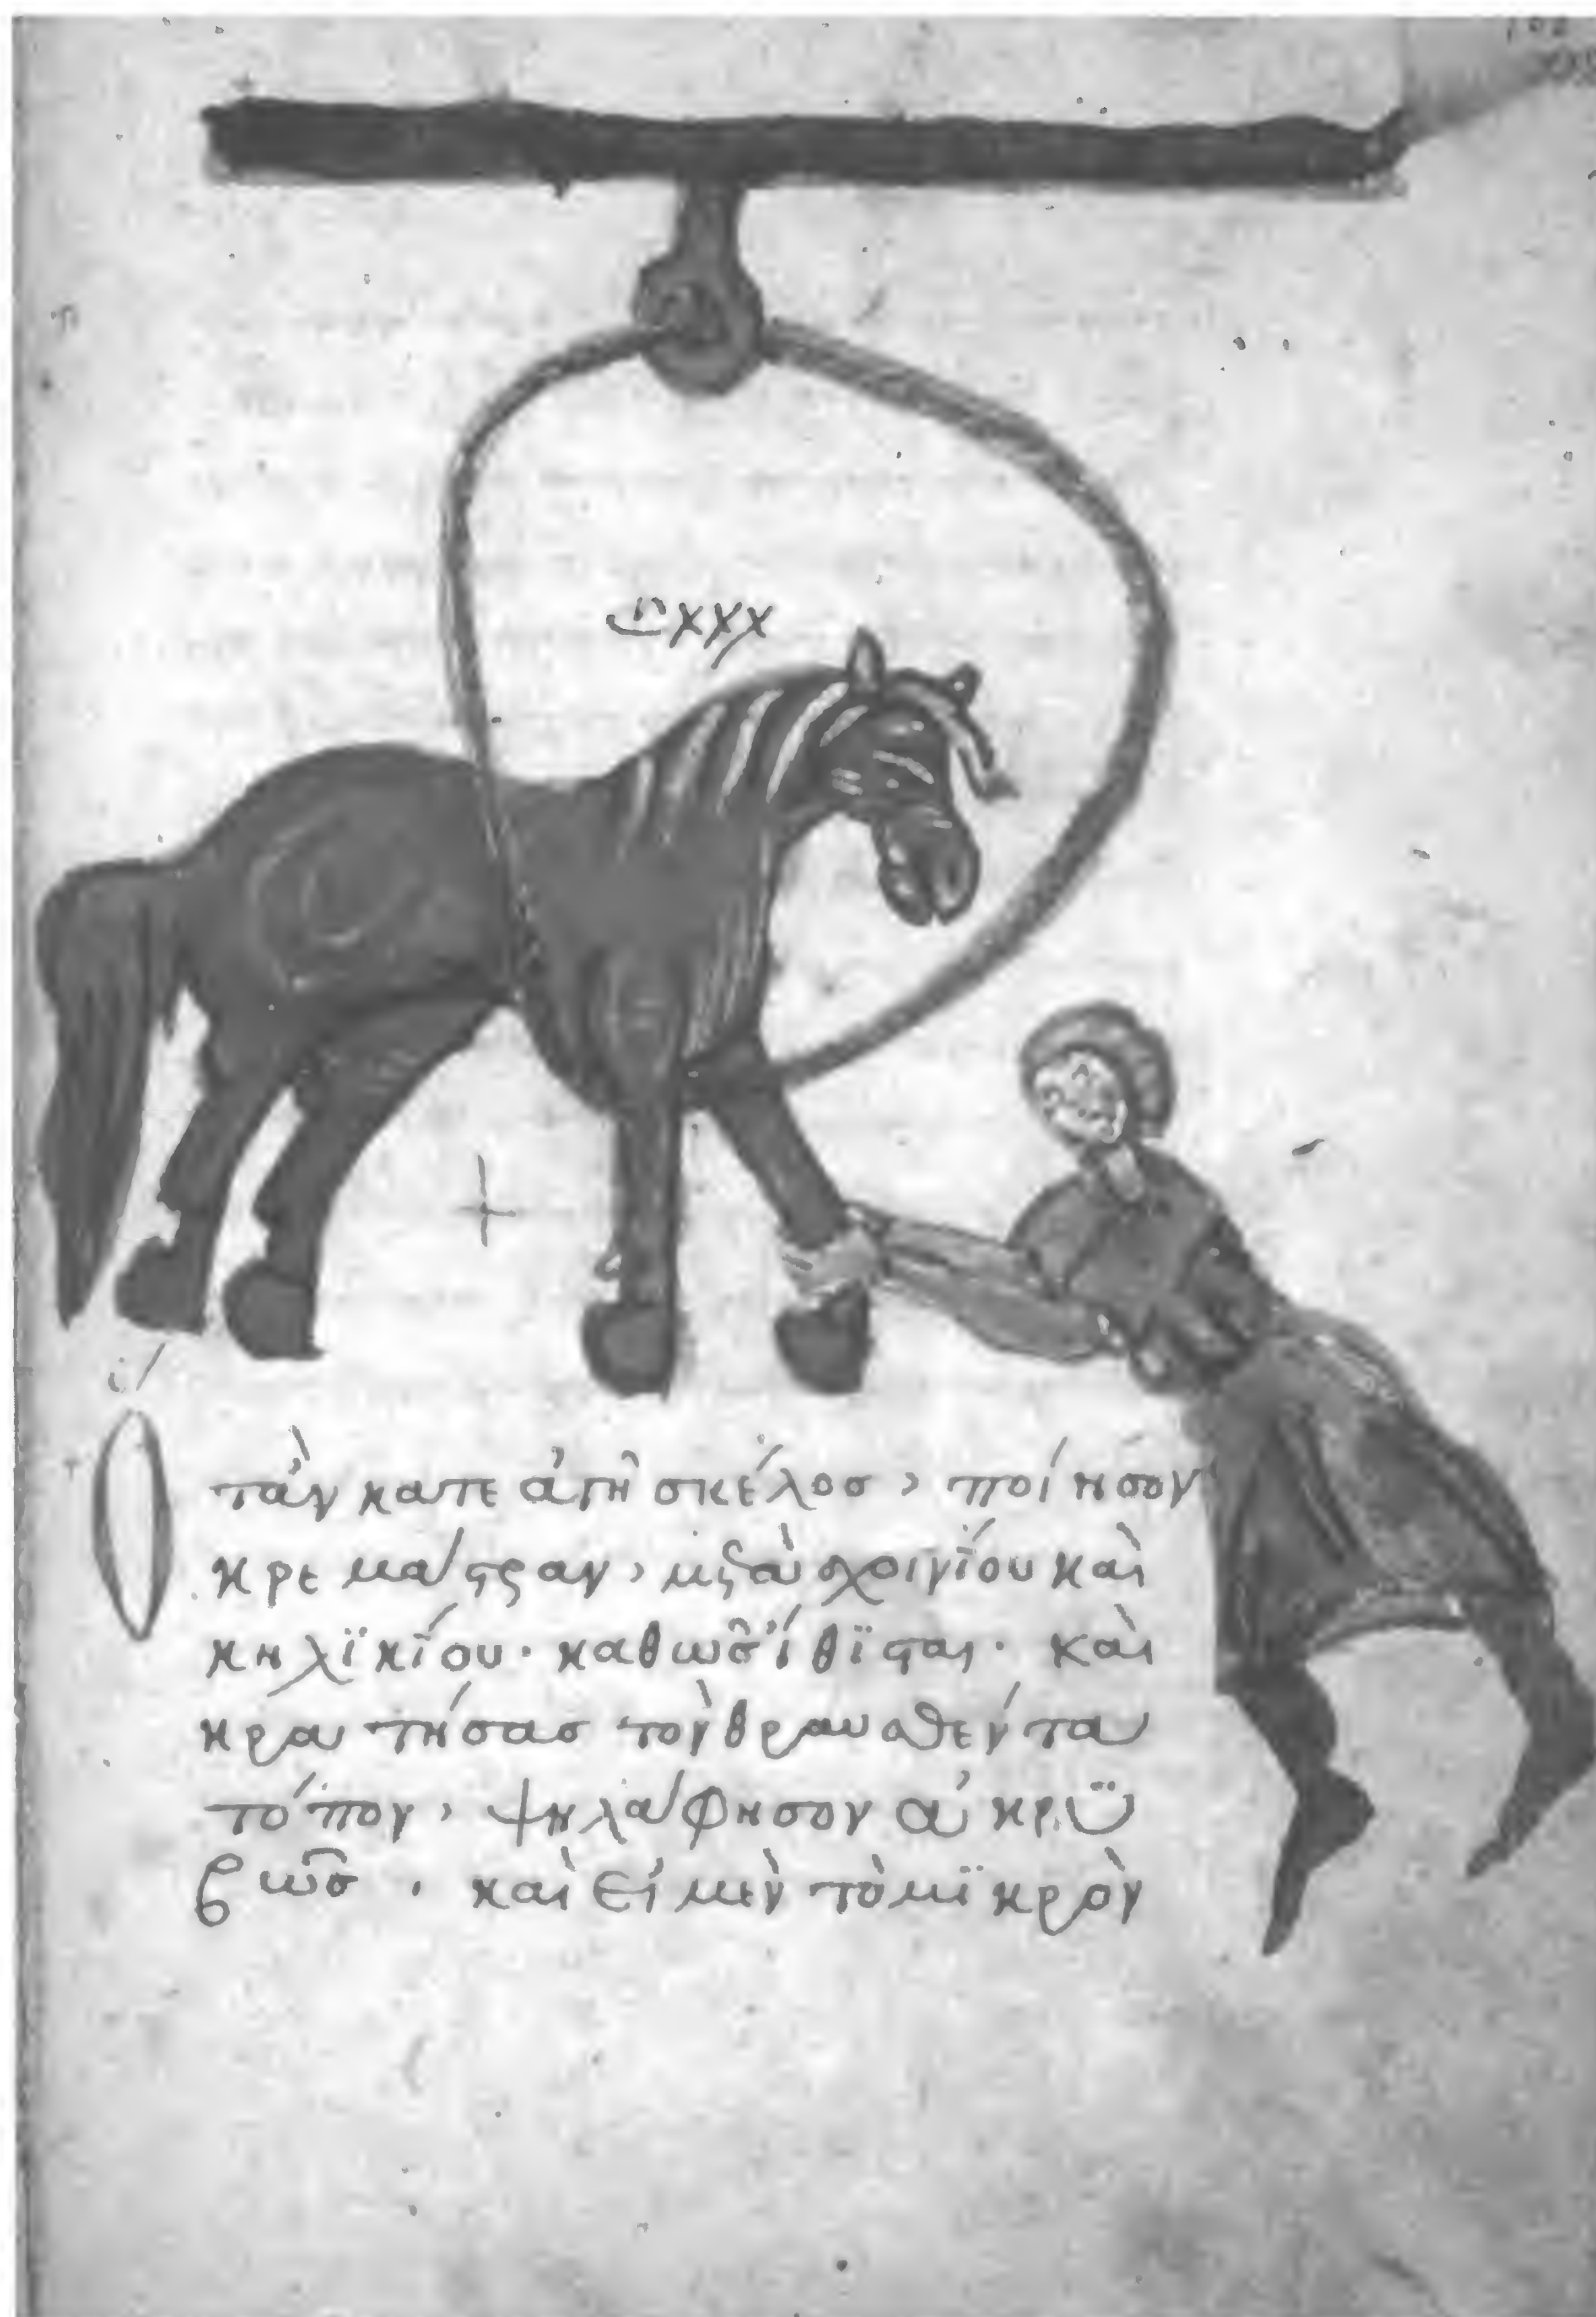 cxxx
Ὁτὰν κατεἀγῆ σκέλοσ, ποίησον
κρεμάστραν, μετὰ σχοινίου καὶ
κηλϊκίου· καθὼσ ἵθϊσται· καὶ
κρατήσασ τὸν θραυσθέντα
τόπον, ψηλάφησον ἀκρϋ
βῶσ. καὶ εἰ μὲν τὸ μϊκρὸν